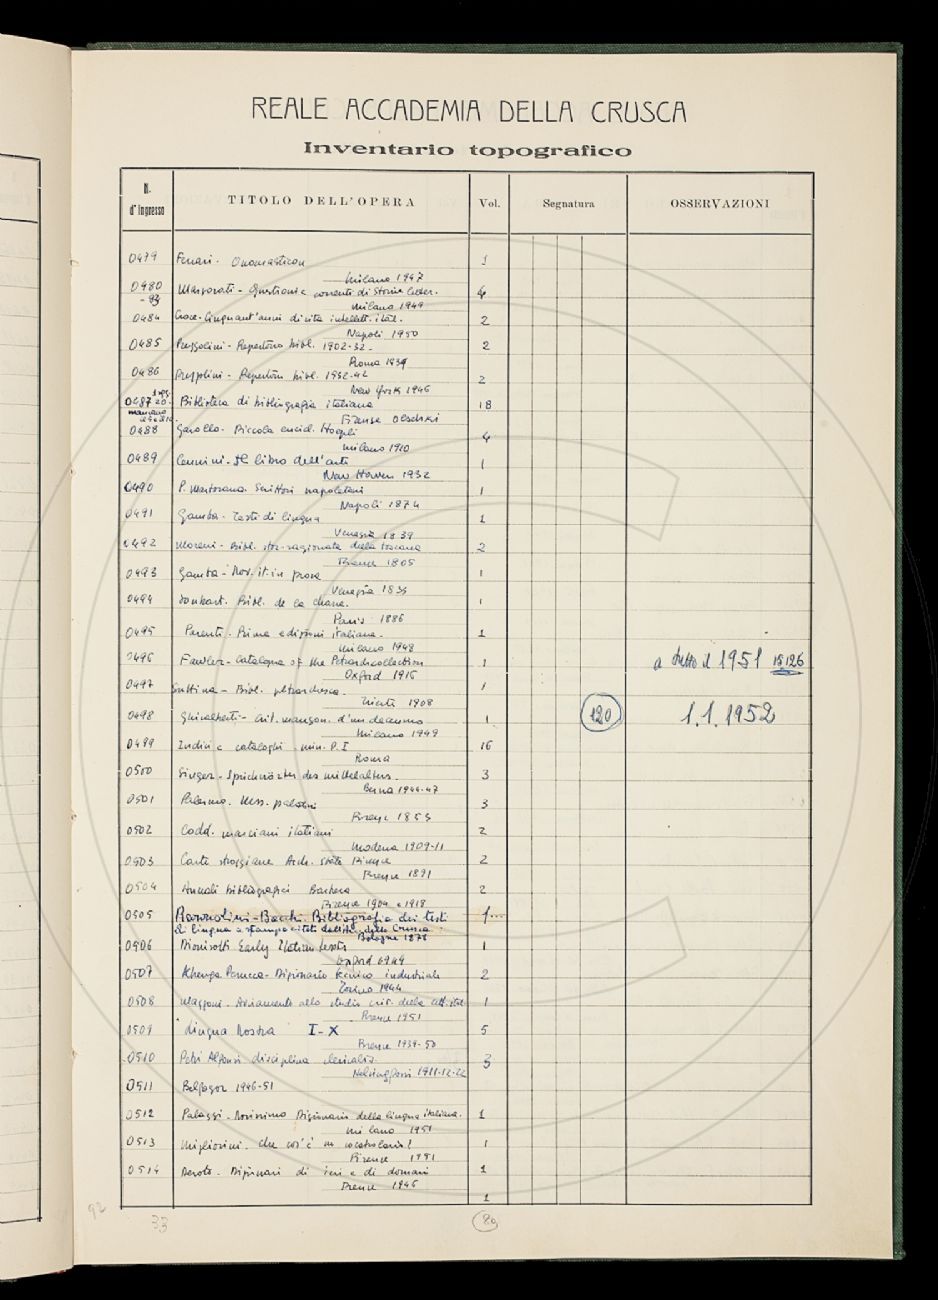 REALE ACCADEMIA DELLA CRUSCA
Inventario topografico
N. d'Ingresso TITOLO DELL'OPERA Vol. Segnatura OSSERVAZIONI
0479 Ferrari - Onomasticon 1
Milano 1947
0480 - 83 Marzorati - Questioni e correnti di Storia letter. 4
Milano 1949
0484 Croce - Cinquant'anni di vita intellett. ital. 2
Napoli 1950
0485 Prezzolini - Repertorio bibl. 1902-32 - 2
Roma 1939
0486 Prezzolini - Repertorio bibl. 1932-42 2
New York 1946
0487 Biblioteca di bibliografia italiana 18
Firenze Olschki
0488 Garollo - Piccola encicl. Hoepli 4
Milano 1910
0489 Cennini - Il libro dell'arte 1
New Haven 1932
0490 P. Martorana. Scrittori napoletani 1
Napoli 1874
0491 Gamba - Testi di lingua 1
Venezia 1839
0492 Moreni - Bibl. stor-ragionata della toscana 2
Firenze 1805
0493 Gamba - Nov. it. in prosa 1
Venezia 1835
0494 Souhart. Bibl. de la chasse. 1
Paris 1886
0495 Parenti - Prime edizioni italiane - 1
Milano 1948
0496 Fowler - Catalogue of the Petrarch collection 1 a tutto il 1951 15126
Oxford 1916
0497 Suttina - Bibl. petrarchesca - 1
Trieste 1908
0498 Ghisalberti - Crit. manzon. d'un decennio 1 120 1.1.1952
Milano 1949
0499 Indici e cataloghi min. P. I 16
Roma
0500 Singer - Sprichwörter des mittelalters - 3
Berna 1944-47
0501 Palermo. Mss. palatini 3
Firenze 1853
0502 Codd. marciani italiani 2
Modena 1909-11
0503 Carte stroziane Arch. stato Firenze 2
Firenze 1891
0504 Annali bibliografici Barbera 2
Firenze 1904 e 1918
0505 Razzolini - Bacchi. Bibliografia dei testi 1
di lingua a stampa citati dagli Acc. della Crusca -
Bologna 1878
0506 Dionisotti Early Italian texts 1
Oxford 1949
0507 Dizionario tecnico industriale 2
Torino 1944
0508 Maggini - Avviamento allo studio crit. della lett. ital. 1
Firenze 1951
0509 Lingua Nostra I-X 5
Firenze 1939-50
0510 Petri Alfonsi disciplina clericalis 3
Helsingfors 1911-12-22
0511 Belfagor 1946-51
0512 Palazzi - Novissimo Dizionario della lingua italiana. 1
Milano 1951
0513 Migliorini. Che cos'è un vocabolario? 1
Firenze 1951
0514 Devoto - Dizionari di ieri e di domani 1
Firenze 1946
1
92 33 80